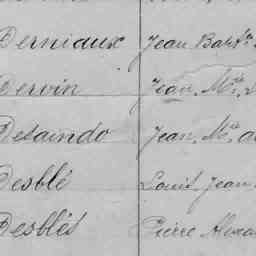 Derniaux Jean Bapt.te
Dervin Jean, M.ie
Desaindo Jean, M.ie
Desblé Louis Jean
Desblés Pierre